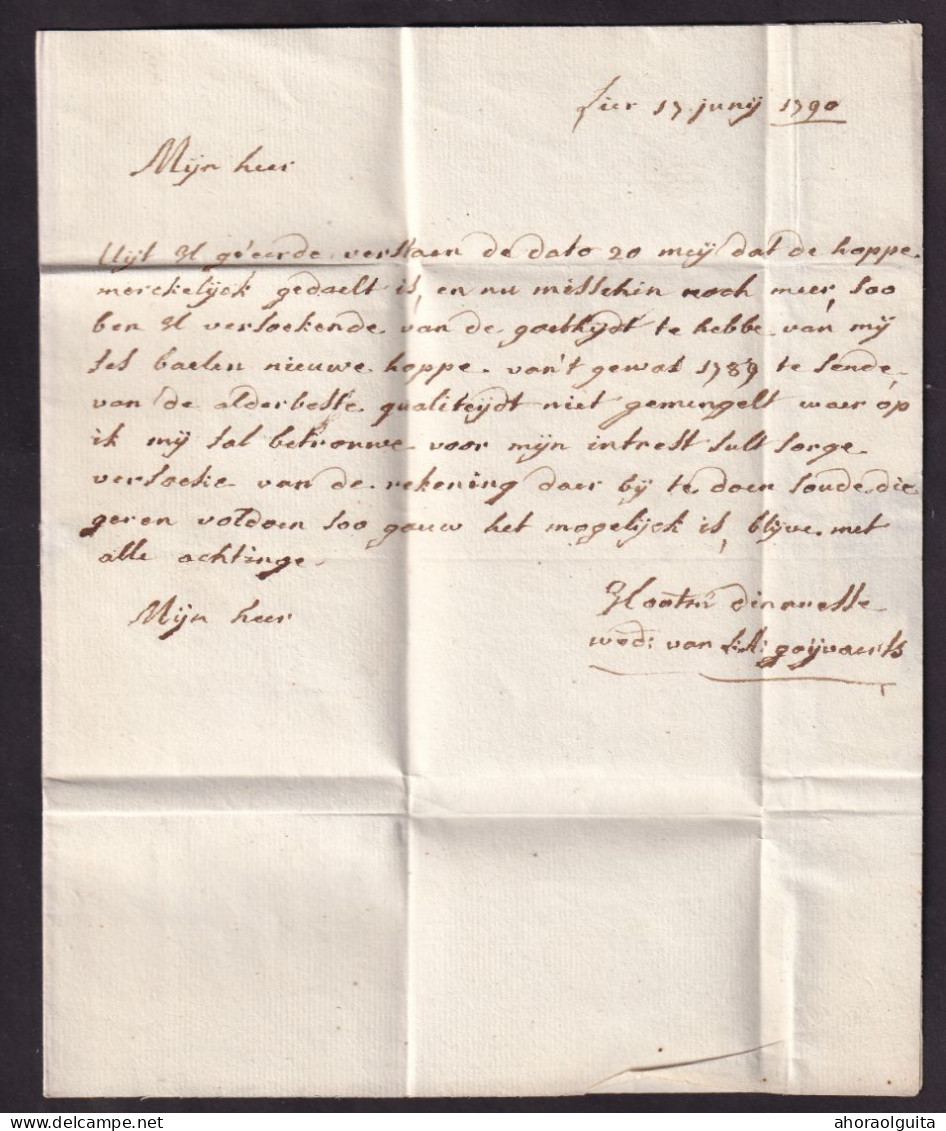 Lier 17 junij 1790
Mijn heer
Uijt Ul geeerde verstaen de dato 20 meij dat de hoppe
merckelijck gedaelt is, en nu misschin noch meer, soo
ben Ul versoekende van de goetheijdt te hebbe van mij
ses baelen nieuwe hoppe van't gewas 1789 te sende
van de alderbeste qualiteijdt niet gemengelt waer op
ik mij sal betrouwe voor mijn intrest sult sorge
versoeke van de rekening daer bij te doen soude die
geren voldoen soo gauw het mogelijck is, blijve met
alle achtinge
Mijn heer
dinaresse
wed: van goijvaerts
ahoraolguita